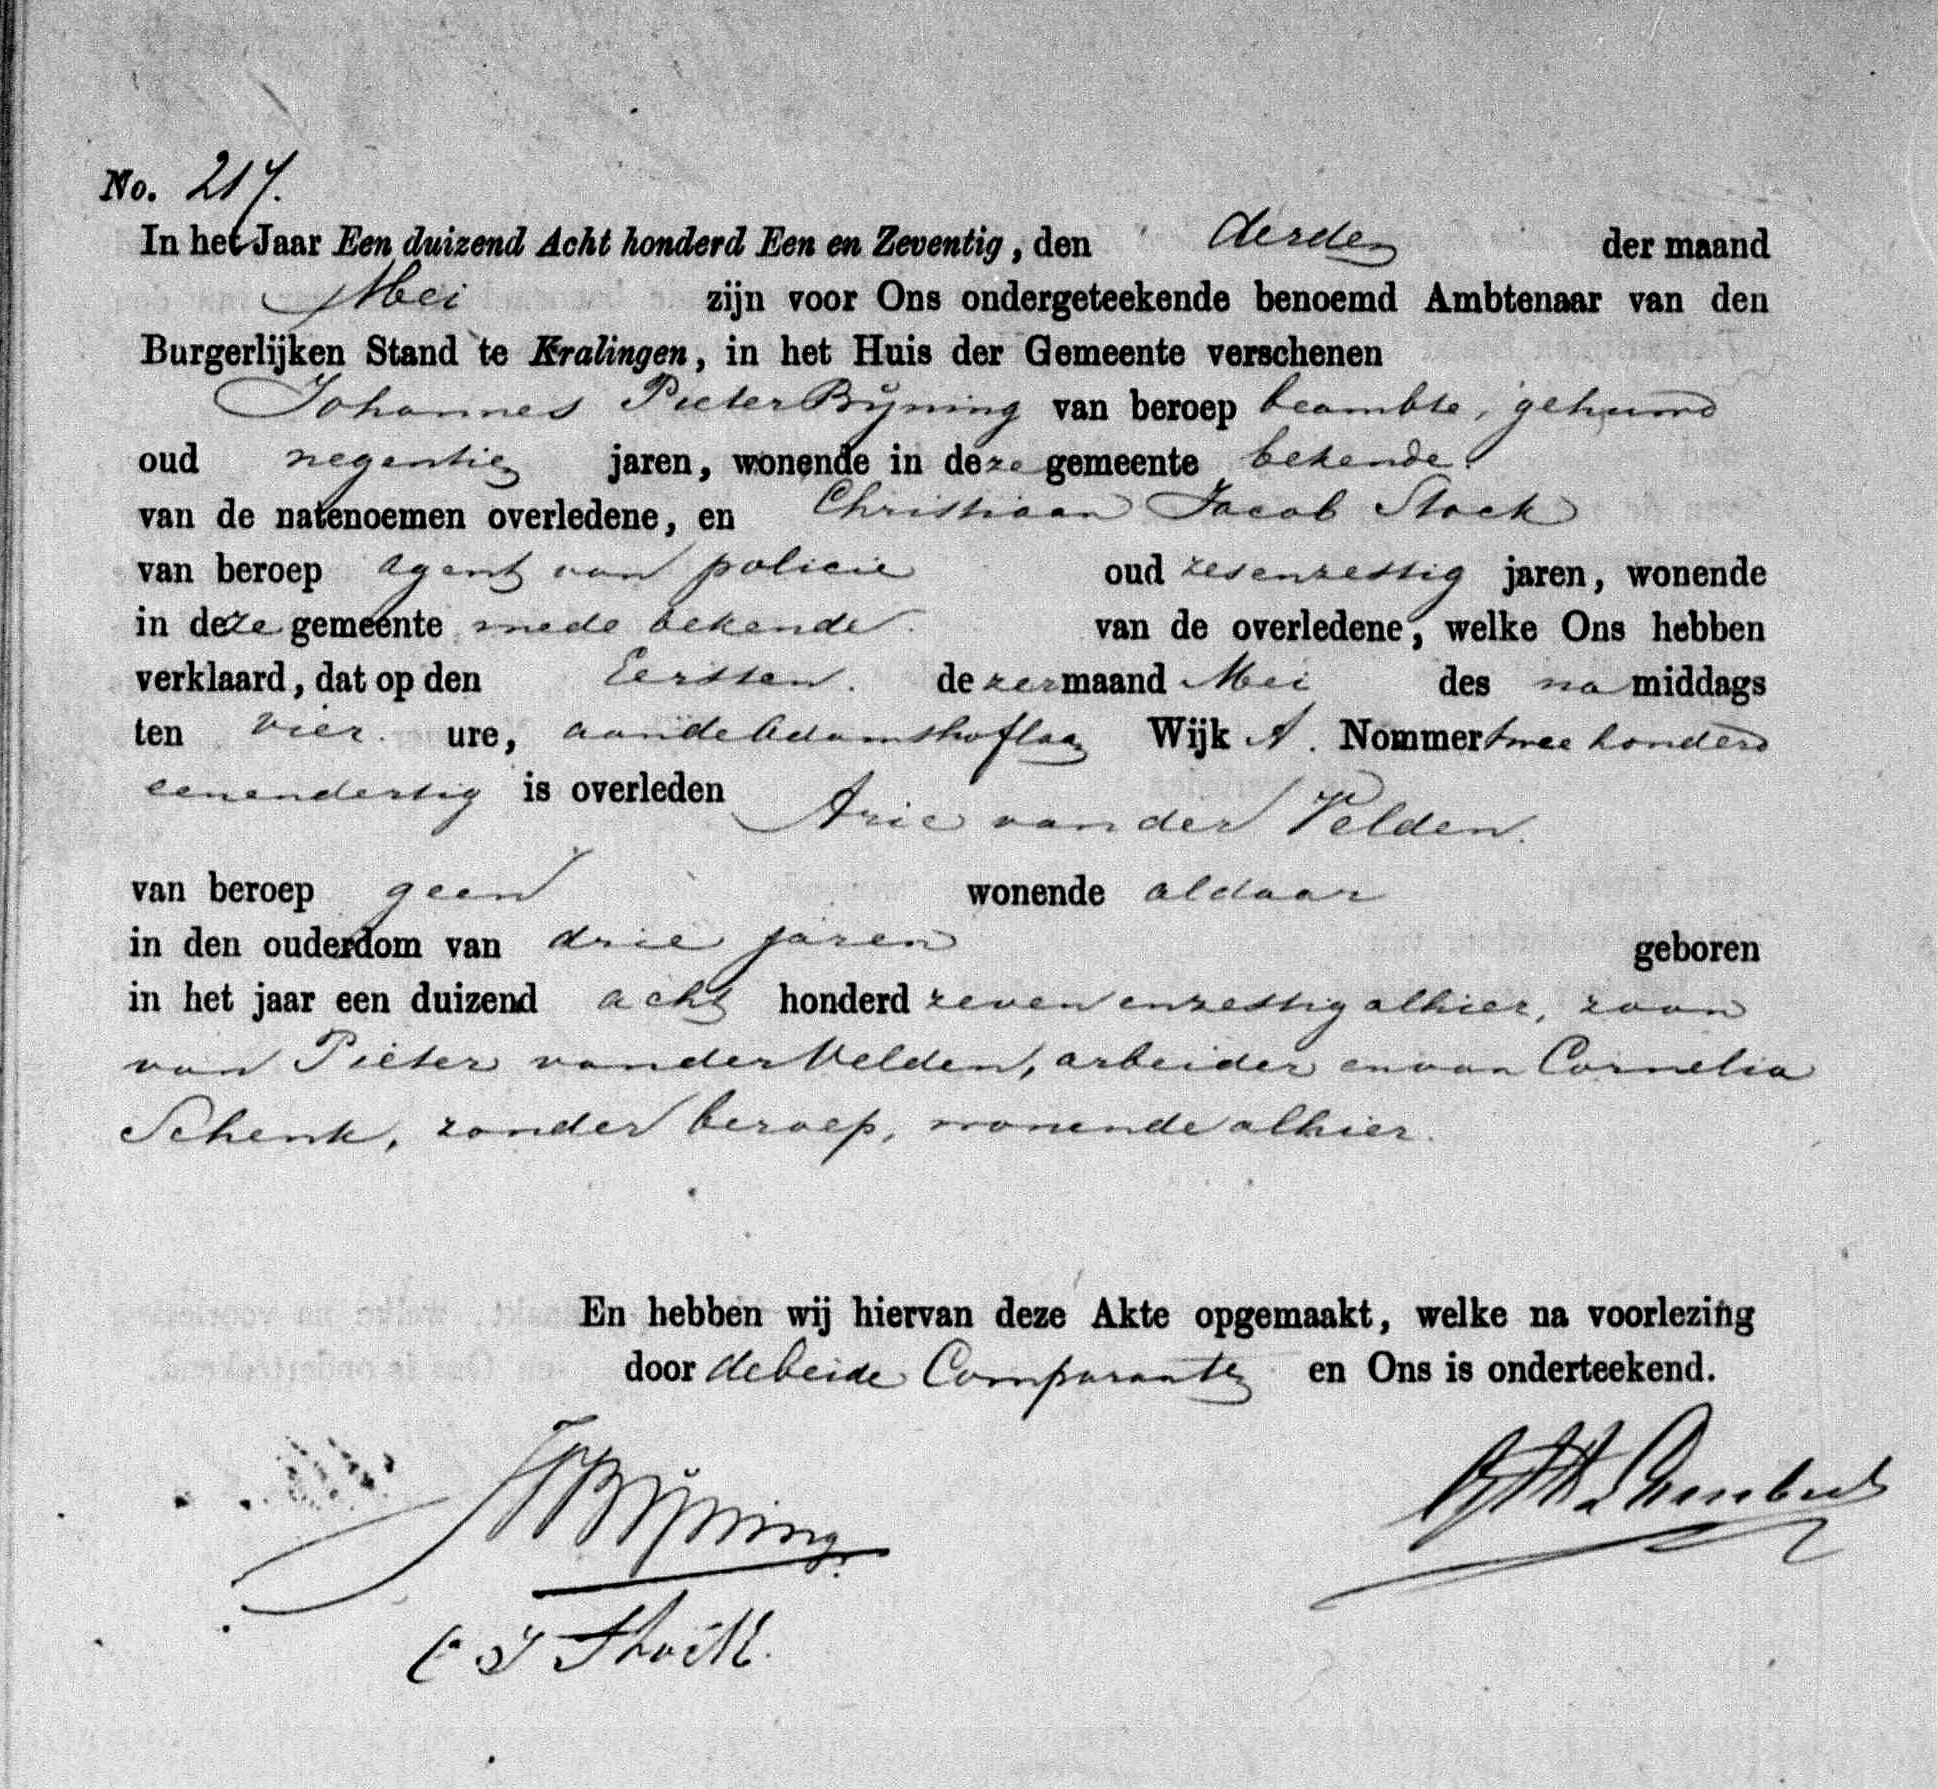 No. 217.
In het Jaar Een duizend Acht honderd Een en Zeventig, den derden der maand
Mei zijn voor Ons ondergeteekende benoemd Ambtenaar van den
Burgerlijken Stand te Kralingen, in het Huis der Gemeente verschenen
Johannes Pieter Bijning van beroep beambte, gehuwd
oud negentig jaren, wonende in deze gemeente bekende
van de natenoemen overledene, en Christiaan Jacob Stock
van beroep agent van policie oud zesenzestig jaren, wonende
in deze gemeente mede bekende van de overledene, welke Ons hebben
verklaard, dat op den Eersten. dezer maand Mei des na middags
ten vier ure, aan de Adamshoflaan Wijk A. Nommer twee honderd
eenendertig is overleden Arie van der Velden.
van beroep geen wonende aldaar
in den ouderdom van drie jaren geboren
in het jaar een duizend acht honderd zeven en zestig alhier, zoon
van Pieter van der Velden, arbeider en van Cornelia
Schenk, zonder beroep, wonende alhier.
En hebben wij hiervan deze Akte opgemaakt, welke na voorlezing
door de beide Comparanten en Ons is onderteekend.
JP Bijning
C J Stock